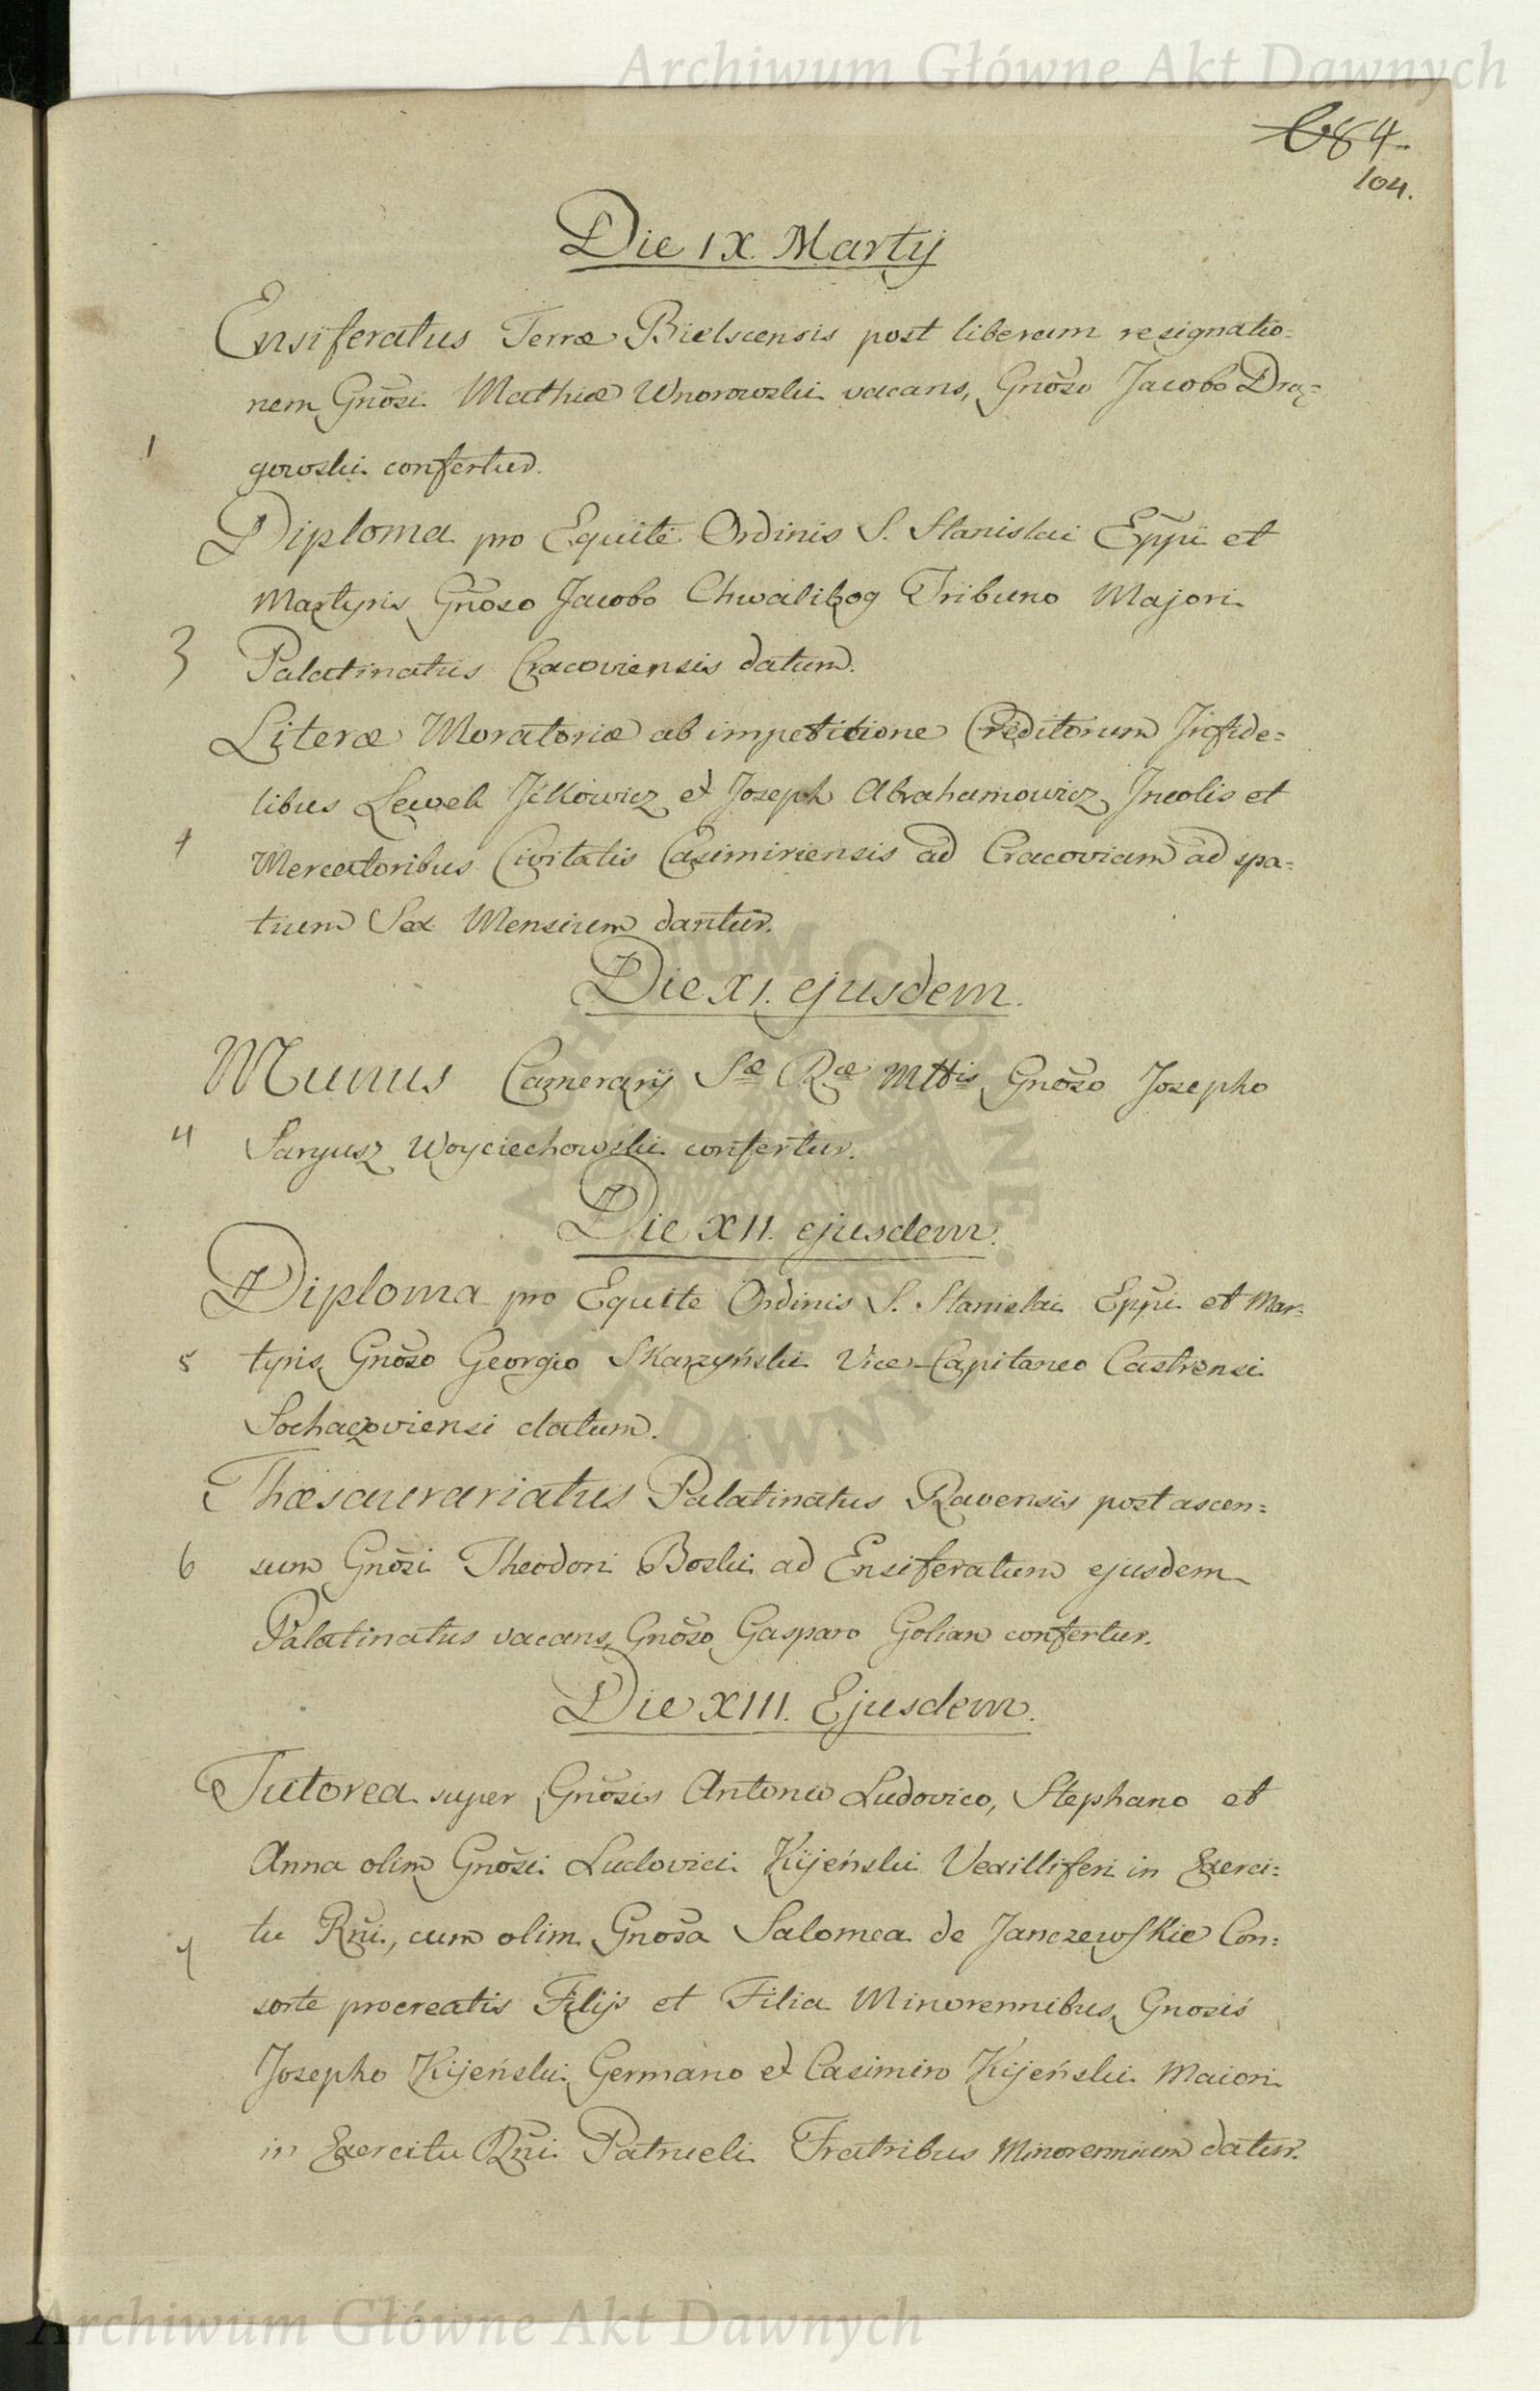 Archiwum Główne Akt Dawnych
684
104.
Die IX. Martij
Ensiferatus Terræ Bielscensis post liberam resignatio=
nem Gnõsi Mathiæ Wnorowski vacans, Gnõso Jacobo Drą=
1
gowski confertur.
Diploma pro Equite Ordinis S. Stanislai Eppĩ et
Martyris Gnõso Jacobo Chwalibog Tribuno Majori
3 Palatinatus Cracoviensis datum.
Literæ Moratoriæ ab impetitione Creditorum Infide=
libus Lewek Ickowicz et Joseph Abrahamowicz Incolis et
Mercatoribus Civitatis Casimiriensis ad Cracoviam ad spa=
tium Sex Mensium dantur.
Die XI. ejusdem.
Munus Camerarij Sæ Ræ Mttis Gnõso Josepho
4 Saryusz Woyciechowski confertur.
Die XII. ejusdem.
Diploma pro Equite Ordinis S. Stanislai Eppĩ et Mar=
5 tyris Gnõso Georgio Skarzyński Vice-Capitaneo Castrensi
Sochaczoviensi datum.
Thæsaurariatus Palatinatus Ravensis post ascen=
6 sum Gnõsi Theodori Boski ad Ensiferatum ejusdem
Palatinatus vacans, Gnõso Gasparo Golian confertur.
Die XIII. Ejusdem.
Tutorea super Gnõsis Antonio Ludovico, Stephano et
Anna olim Gnõsi Ludovici Kijeński Vexilliferi in Exerci=
tu Rñi, cum olim Gnõsa Salomea de Janczewskie Con=
sorte procreatis Filijs et Filia Minorennibus, Gnosis
Josepho Kijeński Germano et Casimiro Kijeński Maiori
in Exercitu Rñi Patrueli Fratribus Minorennium datur.
ARCHIWUM GŁÓWNE AKT DAWNYCH
Archiwum Główne Akt Dawnych